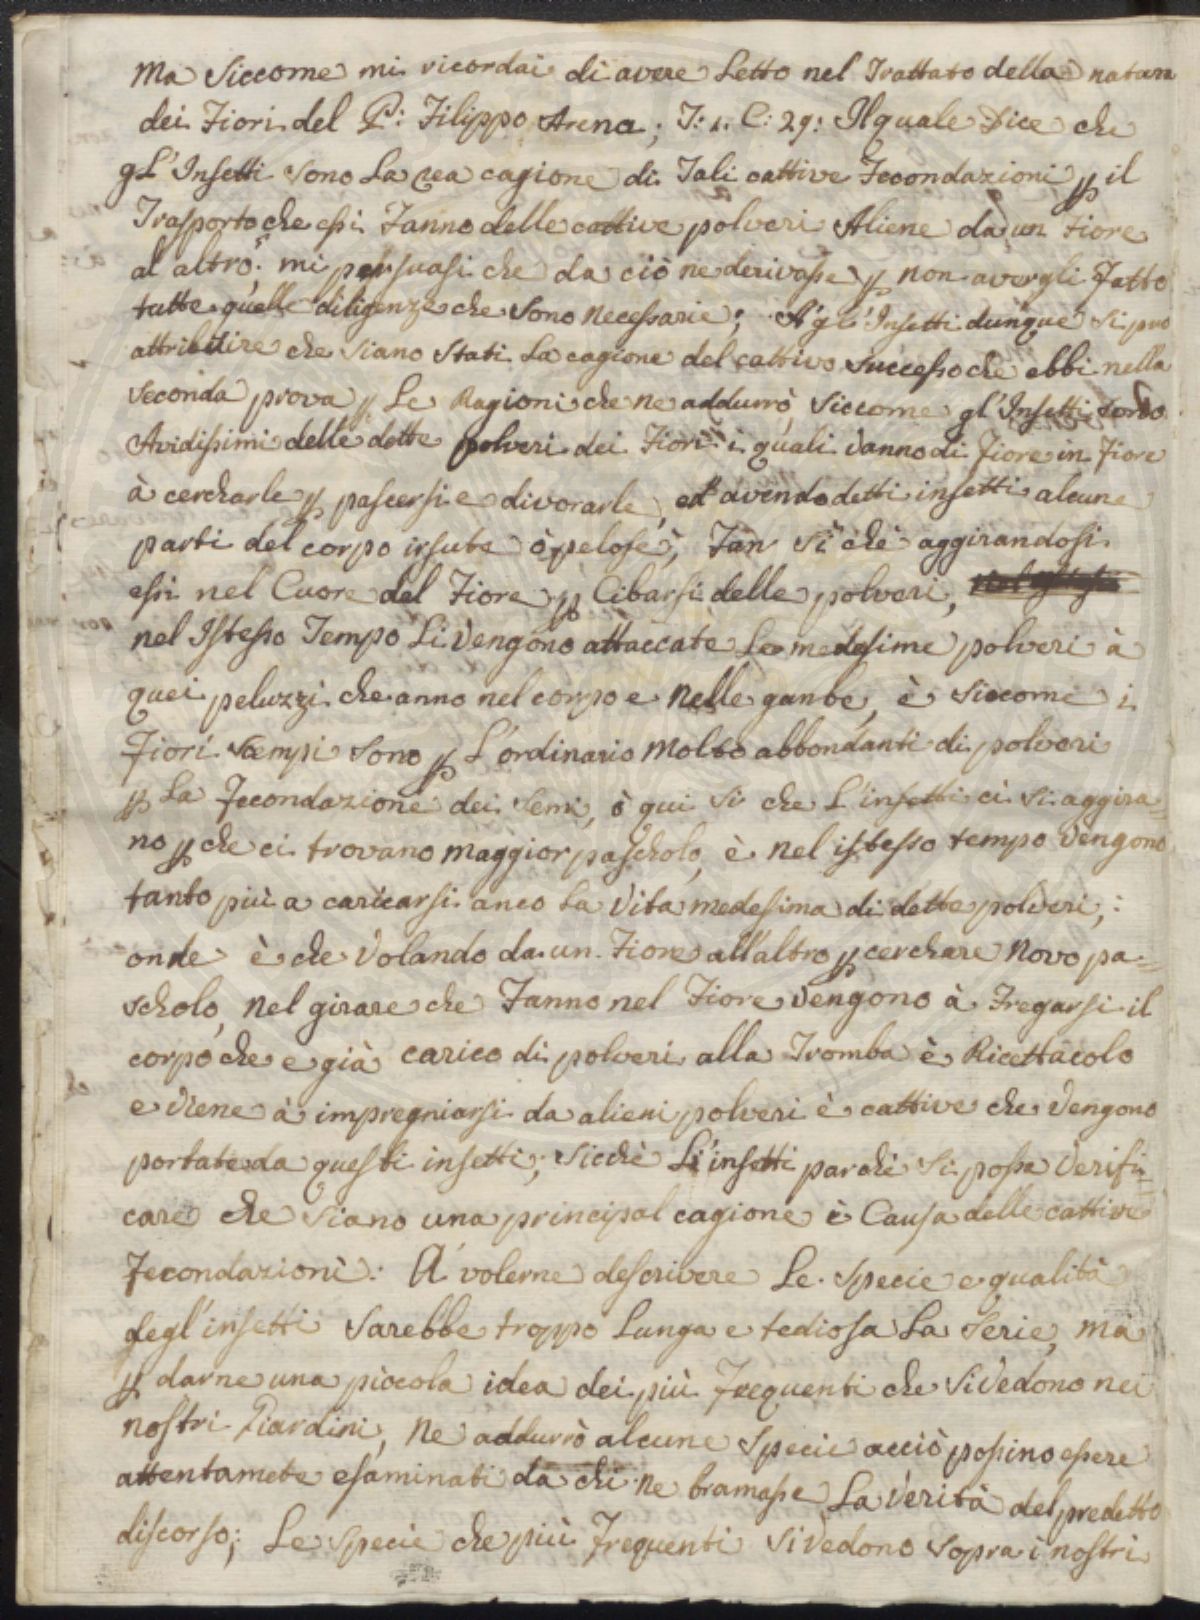 Ma Siccome mi ricordai di avere Letto nel Trattato della natura
dei Fiori del P: Filippo Arena; T: 1: C: 29: Il quale Dice che
gl'Insetti sono La rea cagione di Tali cattive Fecondazioni ꝑ il
Trasporto che essi Fanno delle cattive polveri Aliene da un Fiore
al altro: mi persuasi che da ciò ne derivasse ꝑ non avergli Fatto
tutte quelle diligenze che Sono Necessarie; A' gl'Insetti dunque si può
attribuire che Siano Stati La cagione del cattivo Successo che ebbi nella
Seconda prova ꝑ Le Ragioni che ne addurrò, Siccome gl'Insetti sono
Avidissimi delle dette polveri dei Fiori i quali vanno di Fiore in Fiore
à cercharle ꝑ pascersi e divorarle, ed avendo detti insetti alcune
parti del corpo irsute ò pelose, Fan Sì chè aggirandosi
essi nel Cuore del Fiore ꝑ Cibarsi delle polveri,
nel Istesso Tempo Li Vengono attaccate Le medesime polveri à
quei peluzzi che anno nel corpo e Nelle ganbe, è Siccome i
Fiori Scempi Sono ꝑ L'ordinario Molto abbondanti di polveri
ꝑ La Fecondazione dei Semi, ò qui Si che L'insetti ci Si aggira=
no ꝑ che ci trovano Maggior pascholo, è nel istesso tempo Vengono
tanto più a caricarsi anco La Vita medesima di dette polveri;:
onde è che Volando da un Fiore all'altro ꝑ cerchare Novo pa=
scholo, Nel girare che Fanno nel Fiore Vengono à Fregarsi il
corpo che e già carico di polveri alla Tromba è Ricettacolo
e Viene à impregniarsi da alieni polveri è cattive che Vengono
portate da questi insetti; Sicchè L'insetti parchè Si possa Verifi=
care che Siano una principal cagione è Causa delle cattive
Fecondazioni: A' volerne descrivere Le Specie e qualità
degl'insetti Sarebbe troppo Lunga e tediosa La Serie, Ma
ꝑ darne una piccola idea dei più Frequenti che Si Vedono nei
nostri Giardini, Ne addurrò alcune Specie acciò possino essere
attentamete esaminati da chi ne bramasse La Verità del predetto
discorso; Le Specie che più Frequenti Si Vedono Sopra i nostri